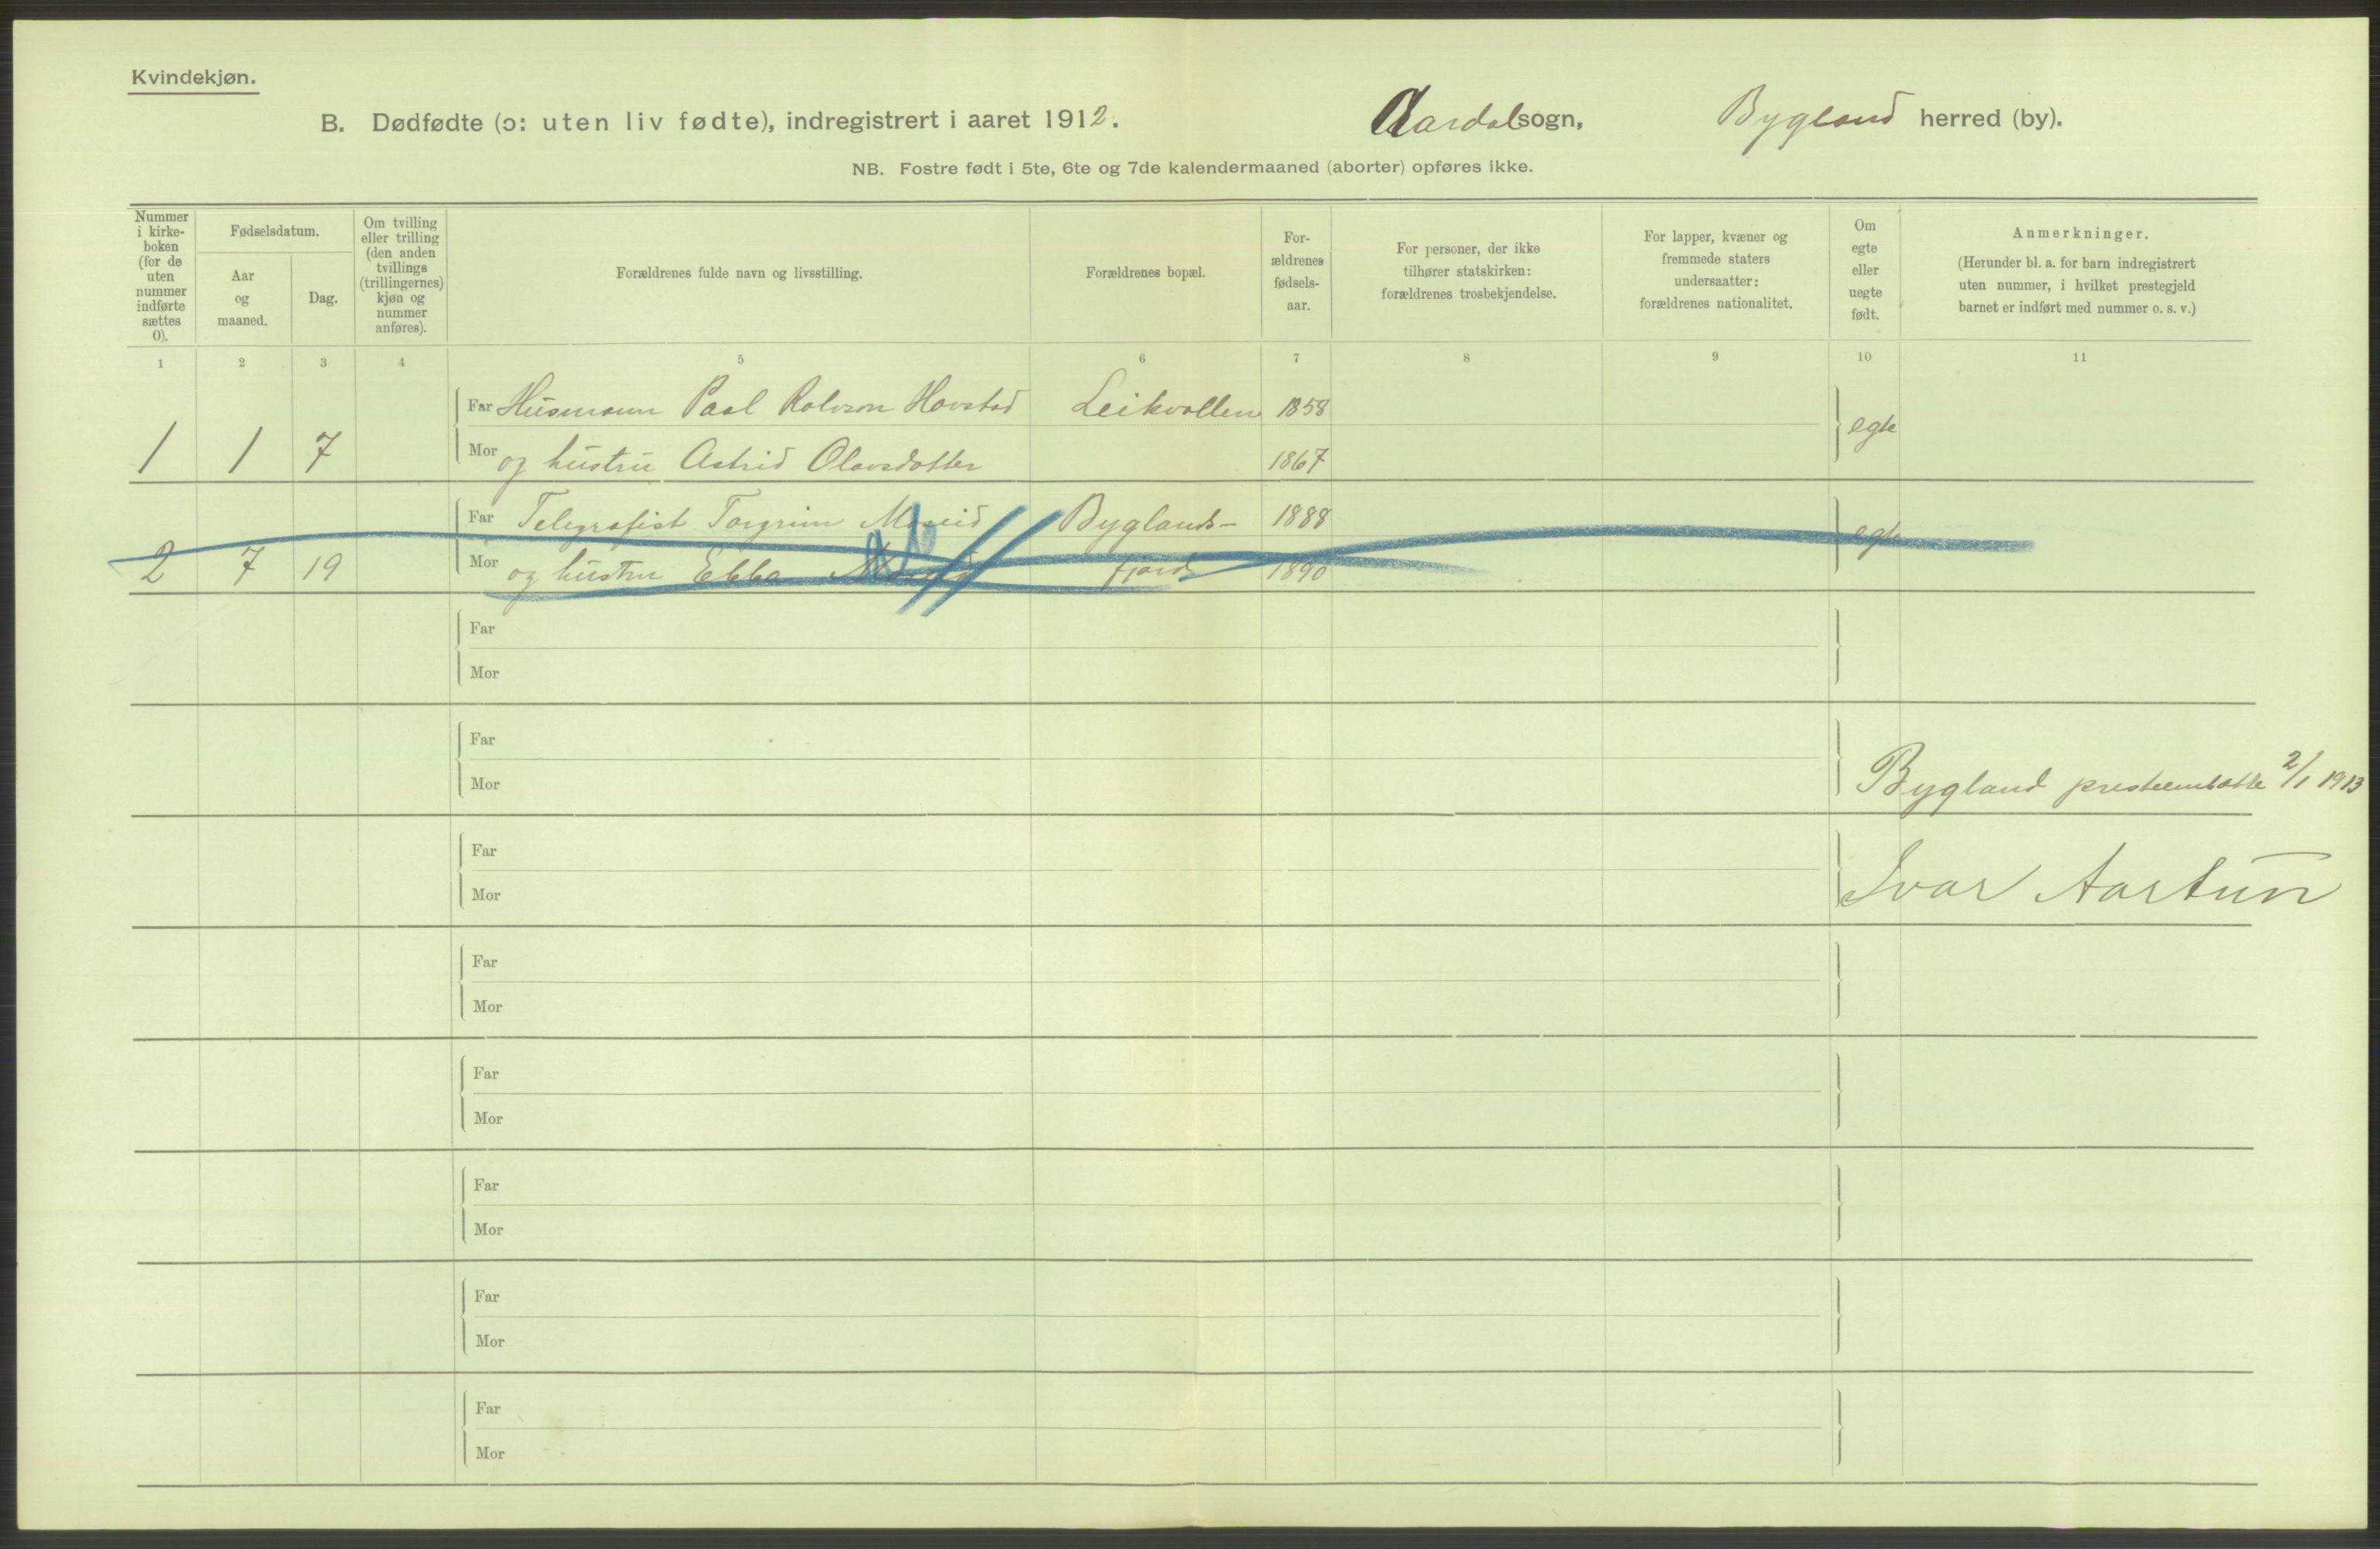 Kvindekjøn.
B. Dødfødte (ɔ: uten liv fødte), indregistrert i aaret 1912. Aardal sogn, Bygland herred (by).
NB. Fostre født i 5te, 6te og 7de kalendermaaned (aborter) opføres ikke.
Nummer i kirke-boken (for de uten nummer indførte sættes 0).
Fødselsdatum.
Aar og maaned.
Dag.
Om tvilling eller trilling (den anden tvillings (trillingernes) kjøn og nummer anføres).
Forældrenes fulde navn og livsstilling.
Forældrenes bopæl.
For-ældrenes fødsels-aar.
For personer, der ikke tilhører statskirken: forældrenes trosbekjendelse.
For lapper, kvæner og fremmede staters undersaatter: forældrenes nationalitet.
Om egte eller uegte født.
Anmerkninger.
(Herunder bl. a. for barn indregistrert uten nummer, i hvilket prestegjeld barnet er indført med nummer o. s. v.)
1 2 3 4 5 6 7 8 9 10 11
Far Husmann Paal Rolvson Hovstad Leikvollen 1858
1 1 7 egte
Mor og hustru Astrid Olavsdotter 1867
Far Telegrafist Torgrim Moseid Byglands- 1888
2 7 19 egte
Mor og hustru Ebba Moseid fjord 1890
Far
Mor
Far
Mor
Bygland presteembætte 2/1 1913
Far
Mor
Ivar Aartun
Far
Mor
Far
Mor
Far
Mor
Far
Mor
Far
Mor